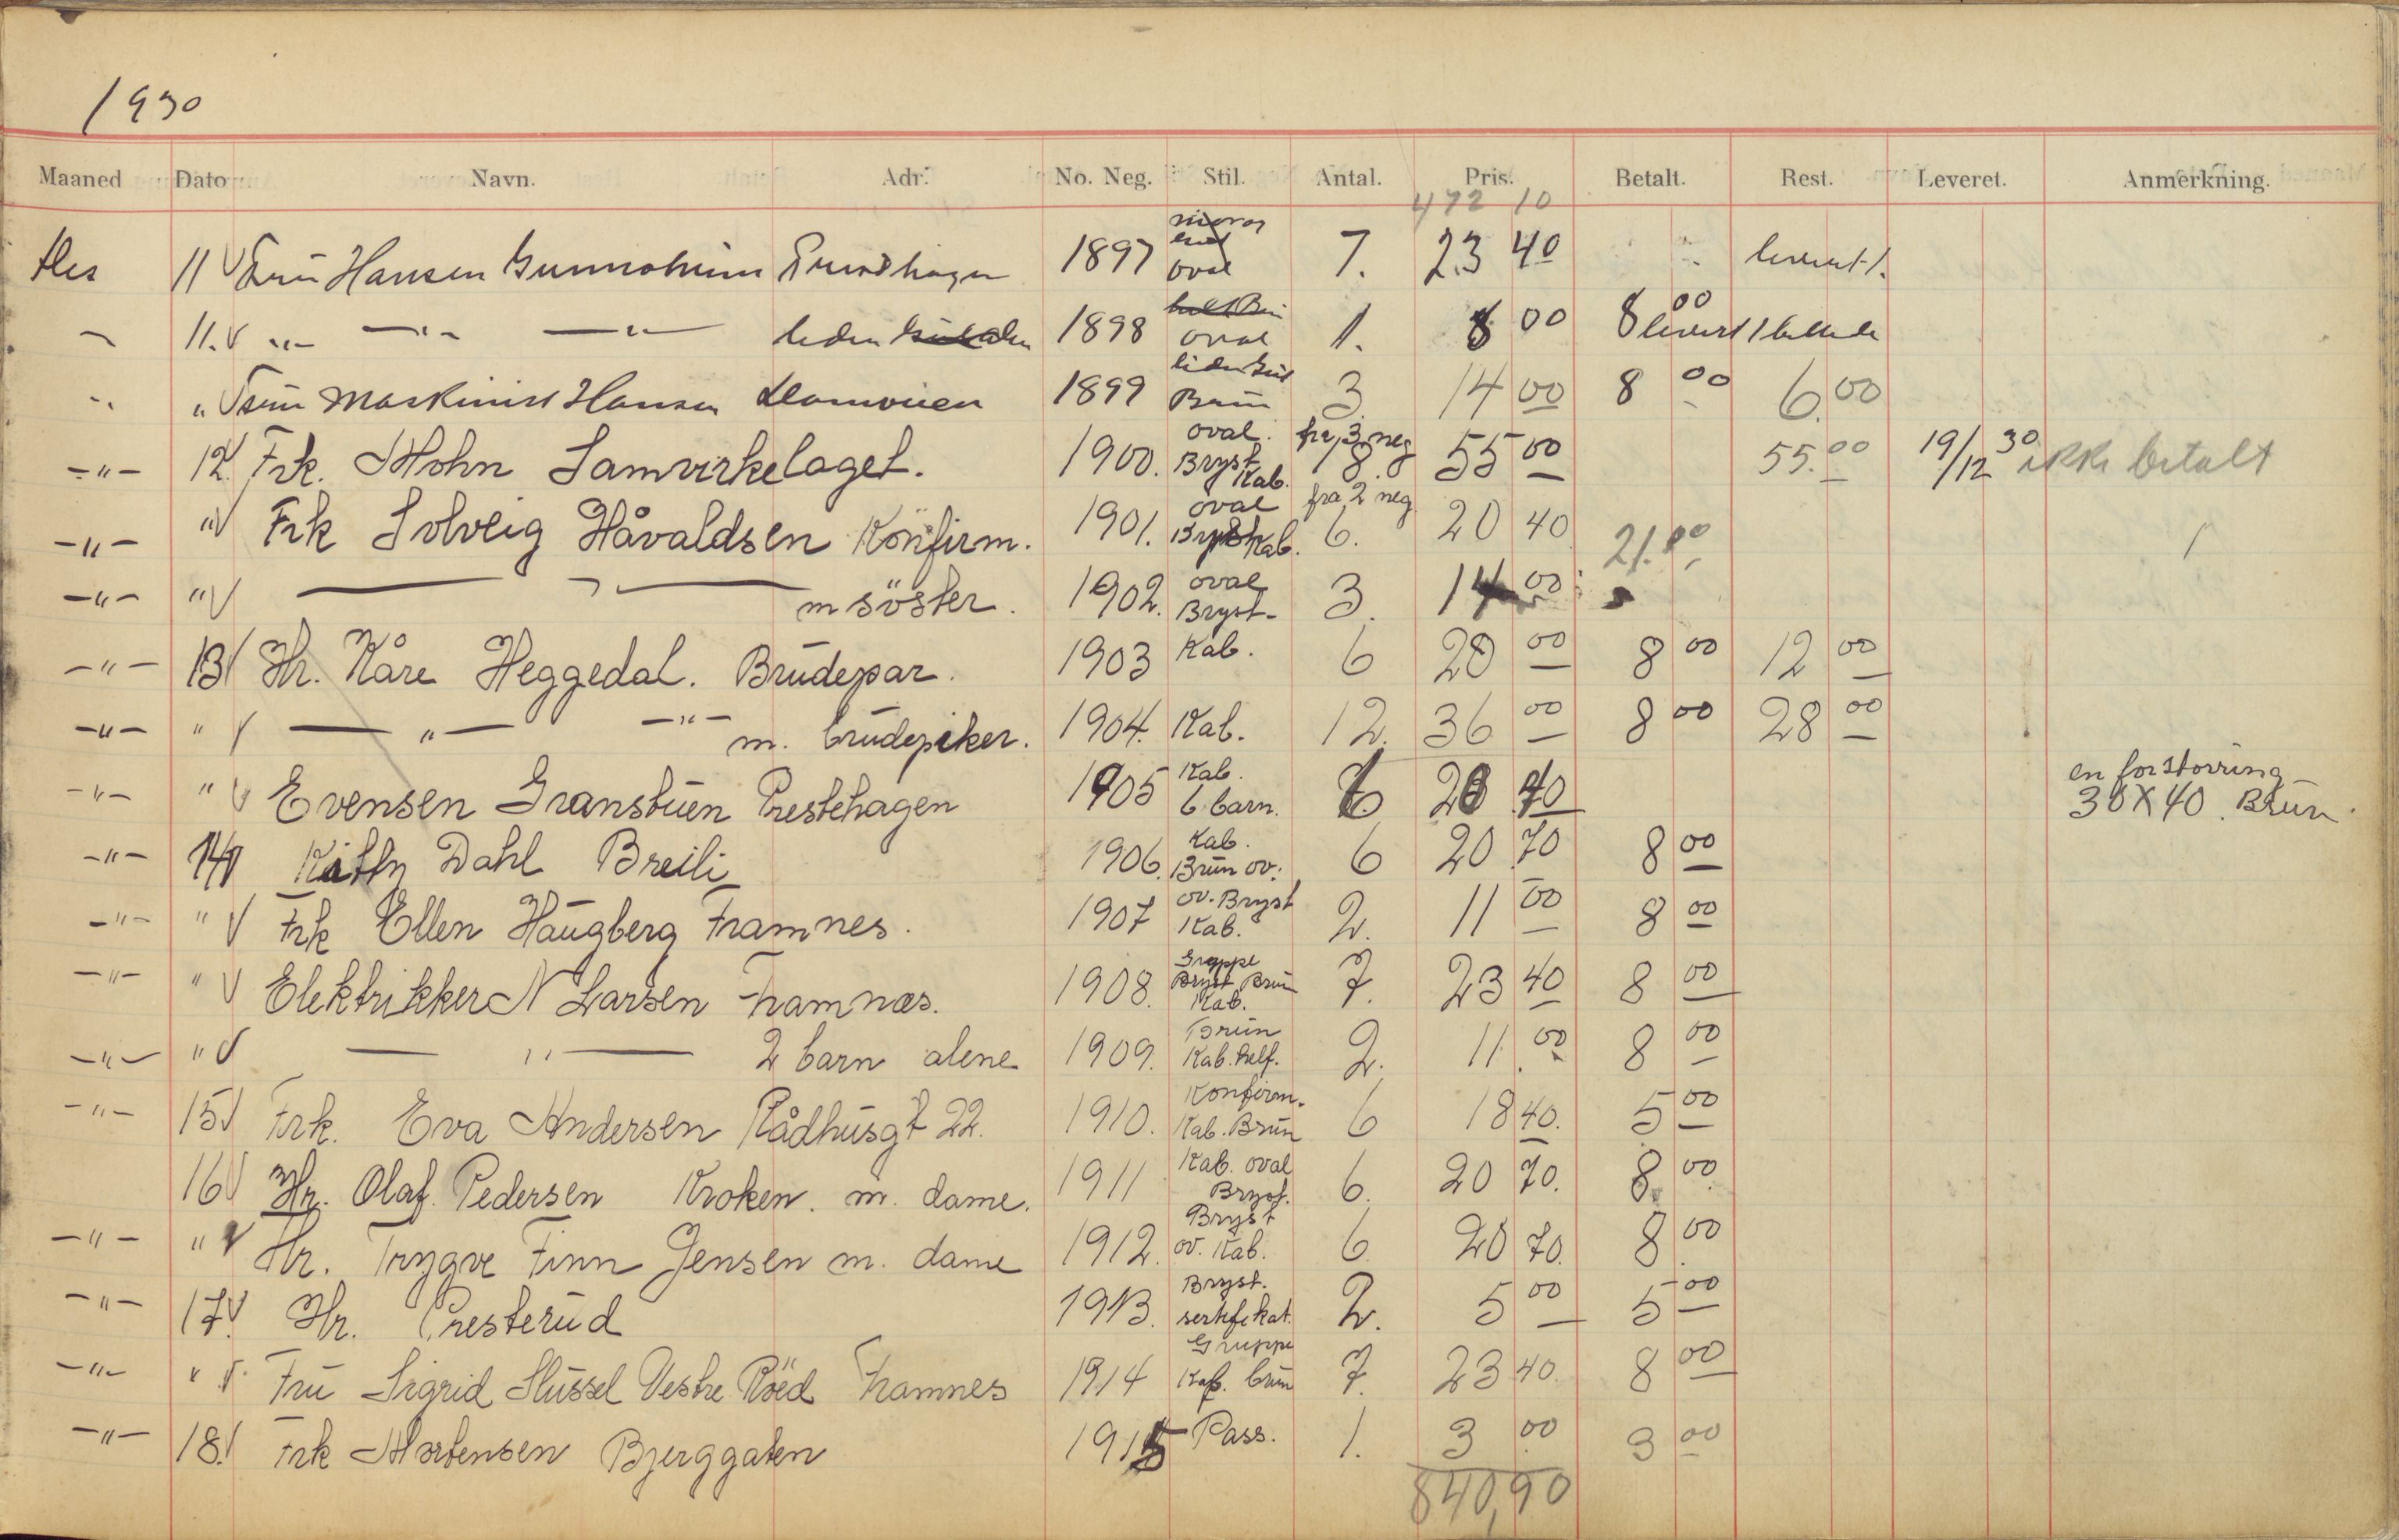 1930
Maaned Dato Navn. Adr. No. Neg. Stil. Antal. Pris. Betalt. Rest. Leveret. Anmerkning.
472 10
Des 11 V Fru Hansen 1897 oval 7. 23 40 levert
11. V 1898 oval 1. 8 00 8 00 levert
" V Fru Maskinist Hansen 1899 Brun 3. 14 00 8 00 6.00
-"- 12 V Frk. Mohn Samvirkelaget. 1900. oval. Bryst Kab. fra 3 neg 18. 55 00 55.00 19/12 30 ikke betalt
-"- " V Frk Solveig Håvaldsen Konfirm. 1901. oval Bryst Kab. fra 2 neg 6. 20 40 21.00
-"- " V m söster. 1902. oval Bryst- 3. 14 00
-"- 13 V Hr. Kåre Heggedal. Brudepar. 1903 Kab. 6 20 00 8 00 12 00
-"- " V — " — -"- m. brudepiker. 1904. Kab. 12. 36 00 8 00 28 00
-"- " V Evensen Granstuen Prestehagen 1905 Kab. 6 barn. en forstörring 30X40. Brun.
-"- 14 V Kitty Dahl Breili 1906. Kab. Brun ov. 6 20 70 8 00
-"- " V Frk Ellen Haugberg Framnes. 1907 ov. Bryst Kab. 2. 11 00 8 00
-"- " V Elektrikker N Larsen Framnæs. 1908. Gruppe Bryst Brun Kab. 7. 23 40 8 00
-"- " V — " — 2 barn alene 1909. Brun Kab. helf. 2. 11.00 8 00
-"- 15 V Frk. Eva Andersen Rådhusgt 22. 1910. Konfirm. Kab. Brun 6 18 40. 5 00
16 V Hr. Olaf Pedersen Kroken. m. dame. 1911 Kab. oval Bryst. 6. 20 70. 8.00
-"- " V Hr. Trygve Finn Jensen m. dame 1912. Bryst ov. Kab. 6. 20 70. 8.00
-"- 17. V Hr. Presterud 1913. Bryst. sertifikat. 2. 5 00 5 00
-"- " V. Fru Sigrid Slussel Vestre Röed Framnes 1914 Gruppe Kab. brun 7. 23 40. 8 00
-"- 18. V Frk Mortensen Bjerggaten 1915 Pass. 1. 3 00 3 00
840,90